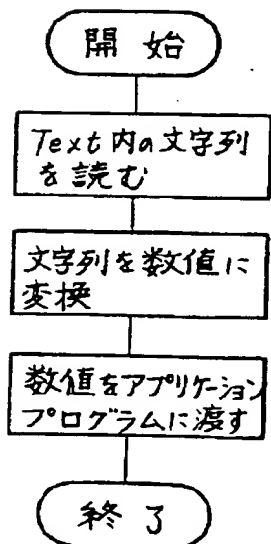 開 始
Text内の文字列
を読む
文字列を数値に
変換
数値をアプリケーション
プログラムに渡す
終 了